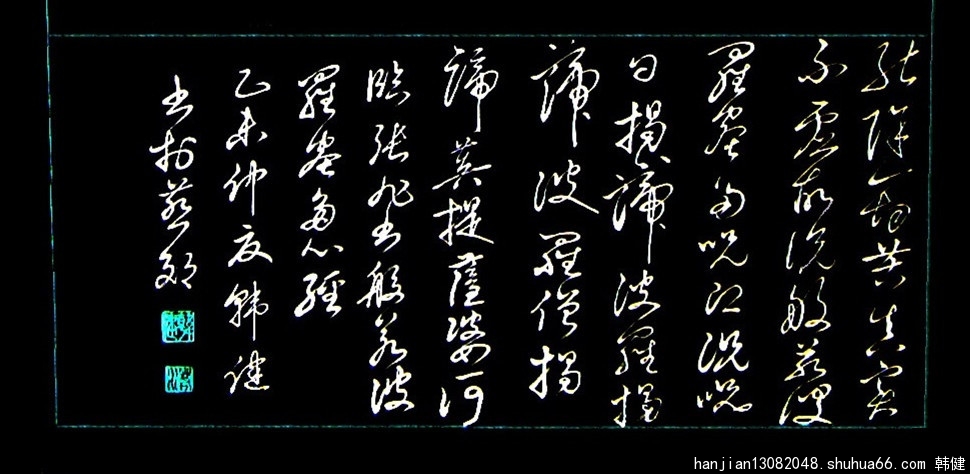 能除一切苦真實
不虛故說般若波
羅蜜多咒即說咒
曰揭諦波羅揭
諦波羅僧揭
諦菩提薩婆訶
臨張旭書般若波
羅蜜多心經
乙未仲夏韓健
書於燕郊
hanjian13082048.shuhua66.com 韩健